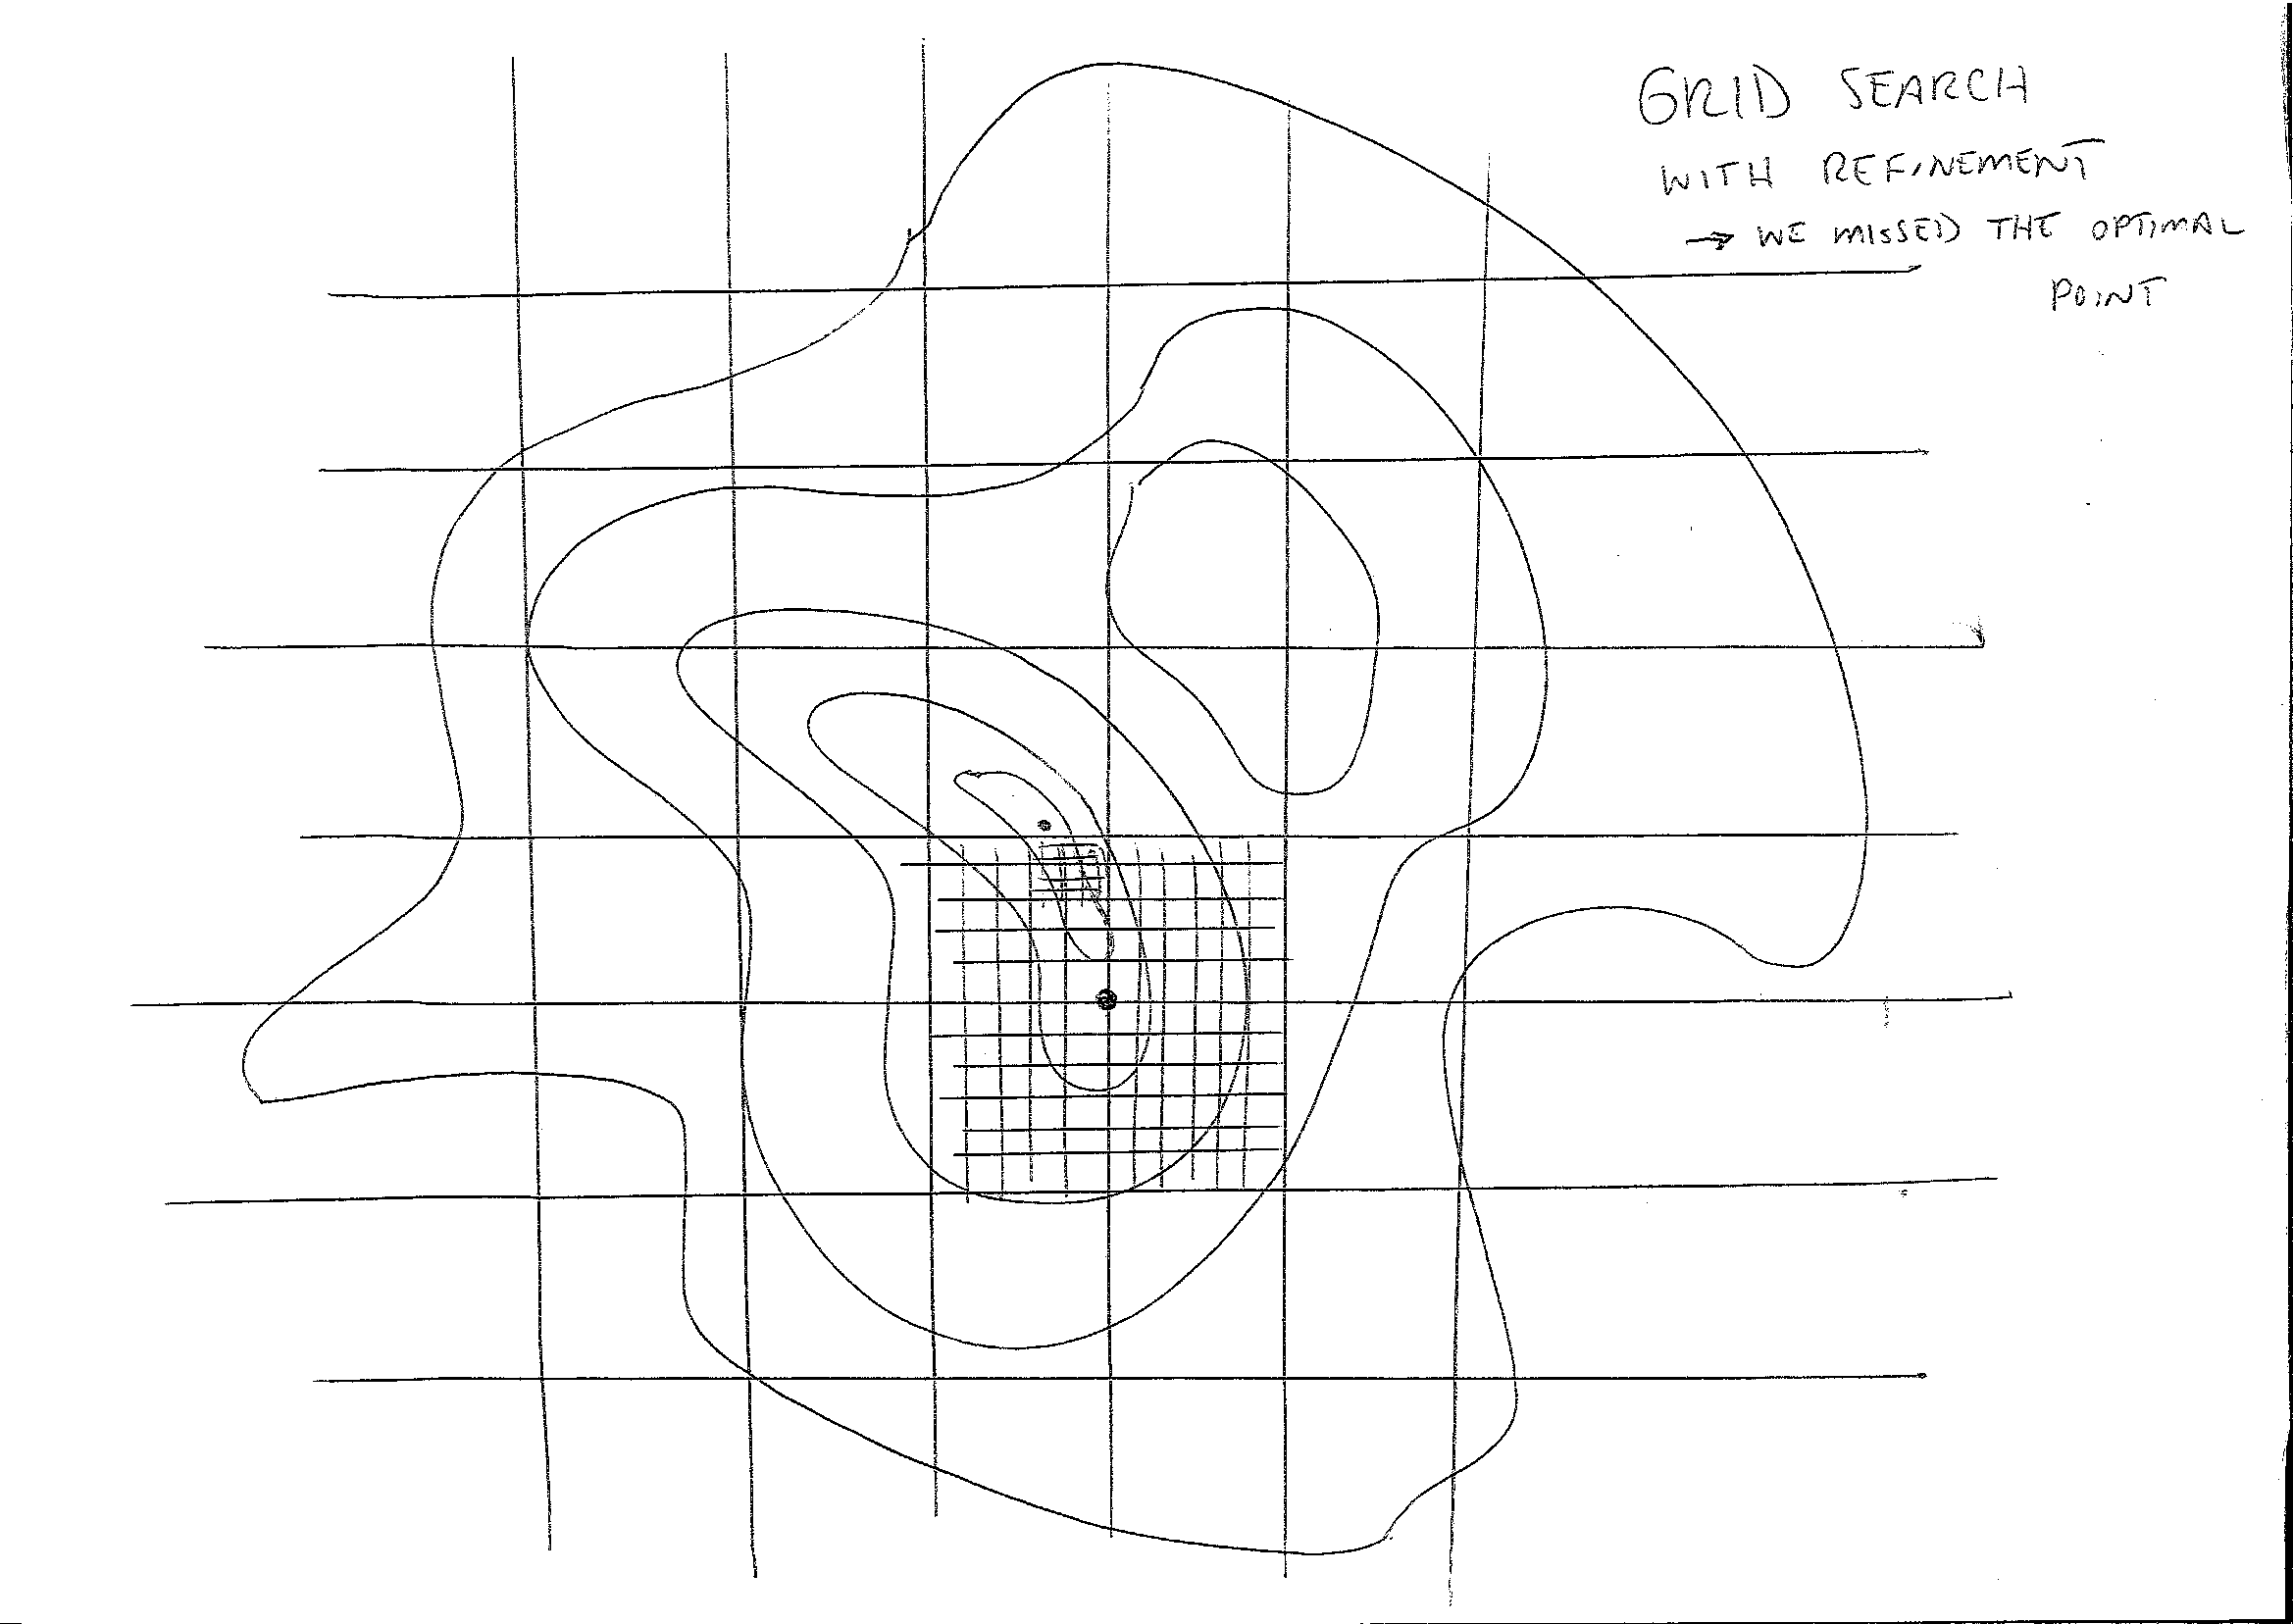 GRID SEARCH
WITH REFINEMENT
→ WE MISSED THE OPTIMAL
POINT